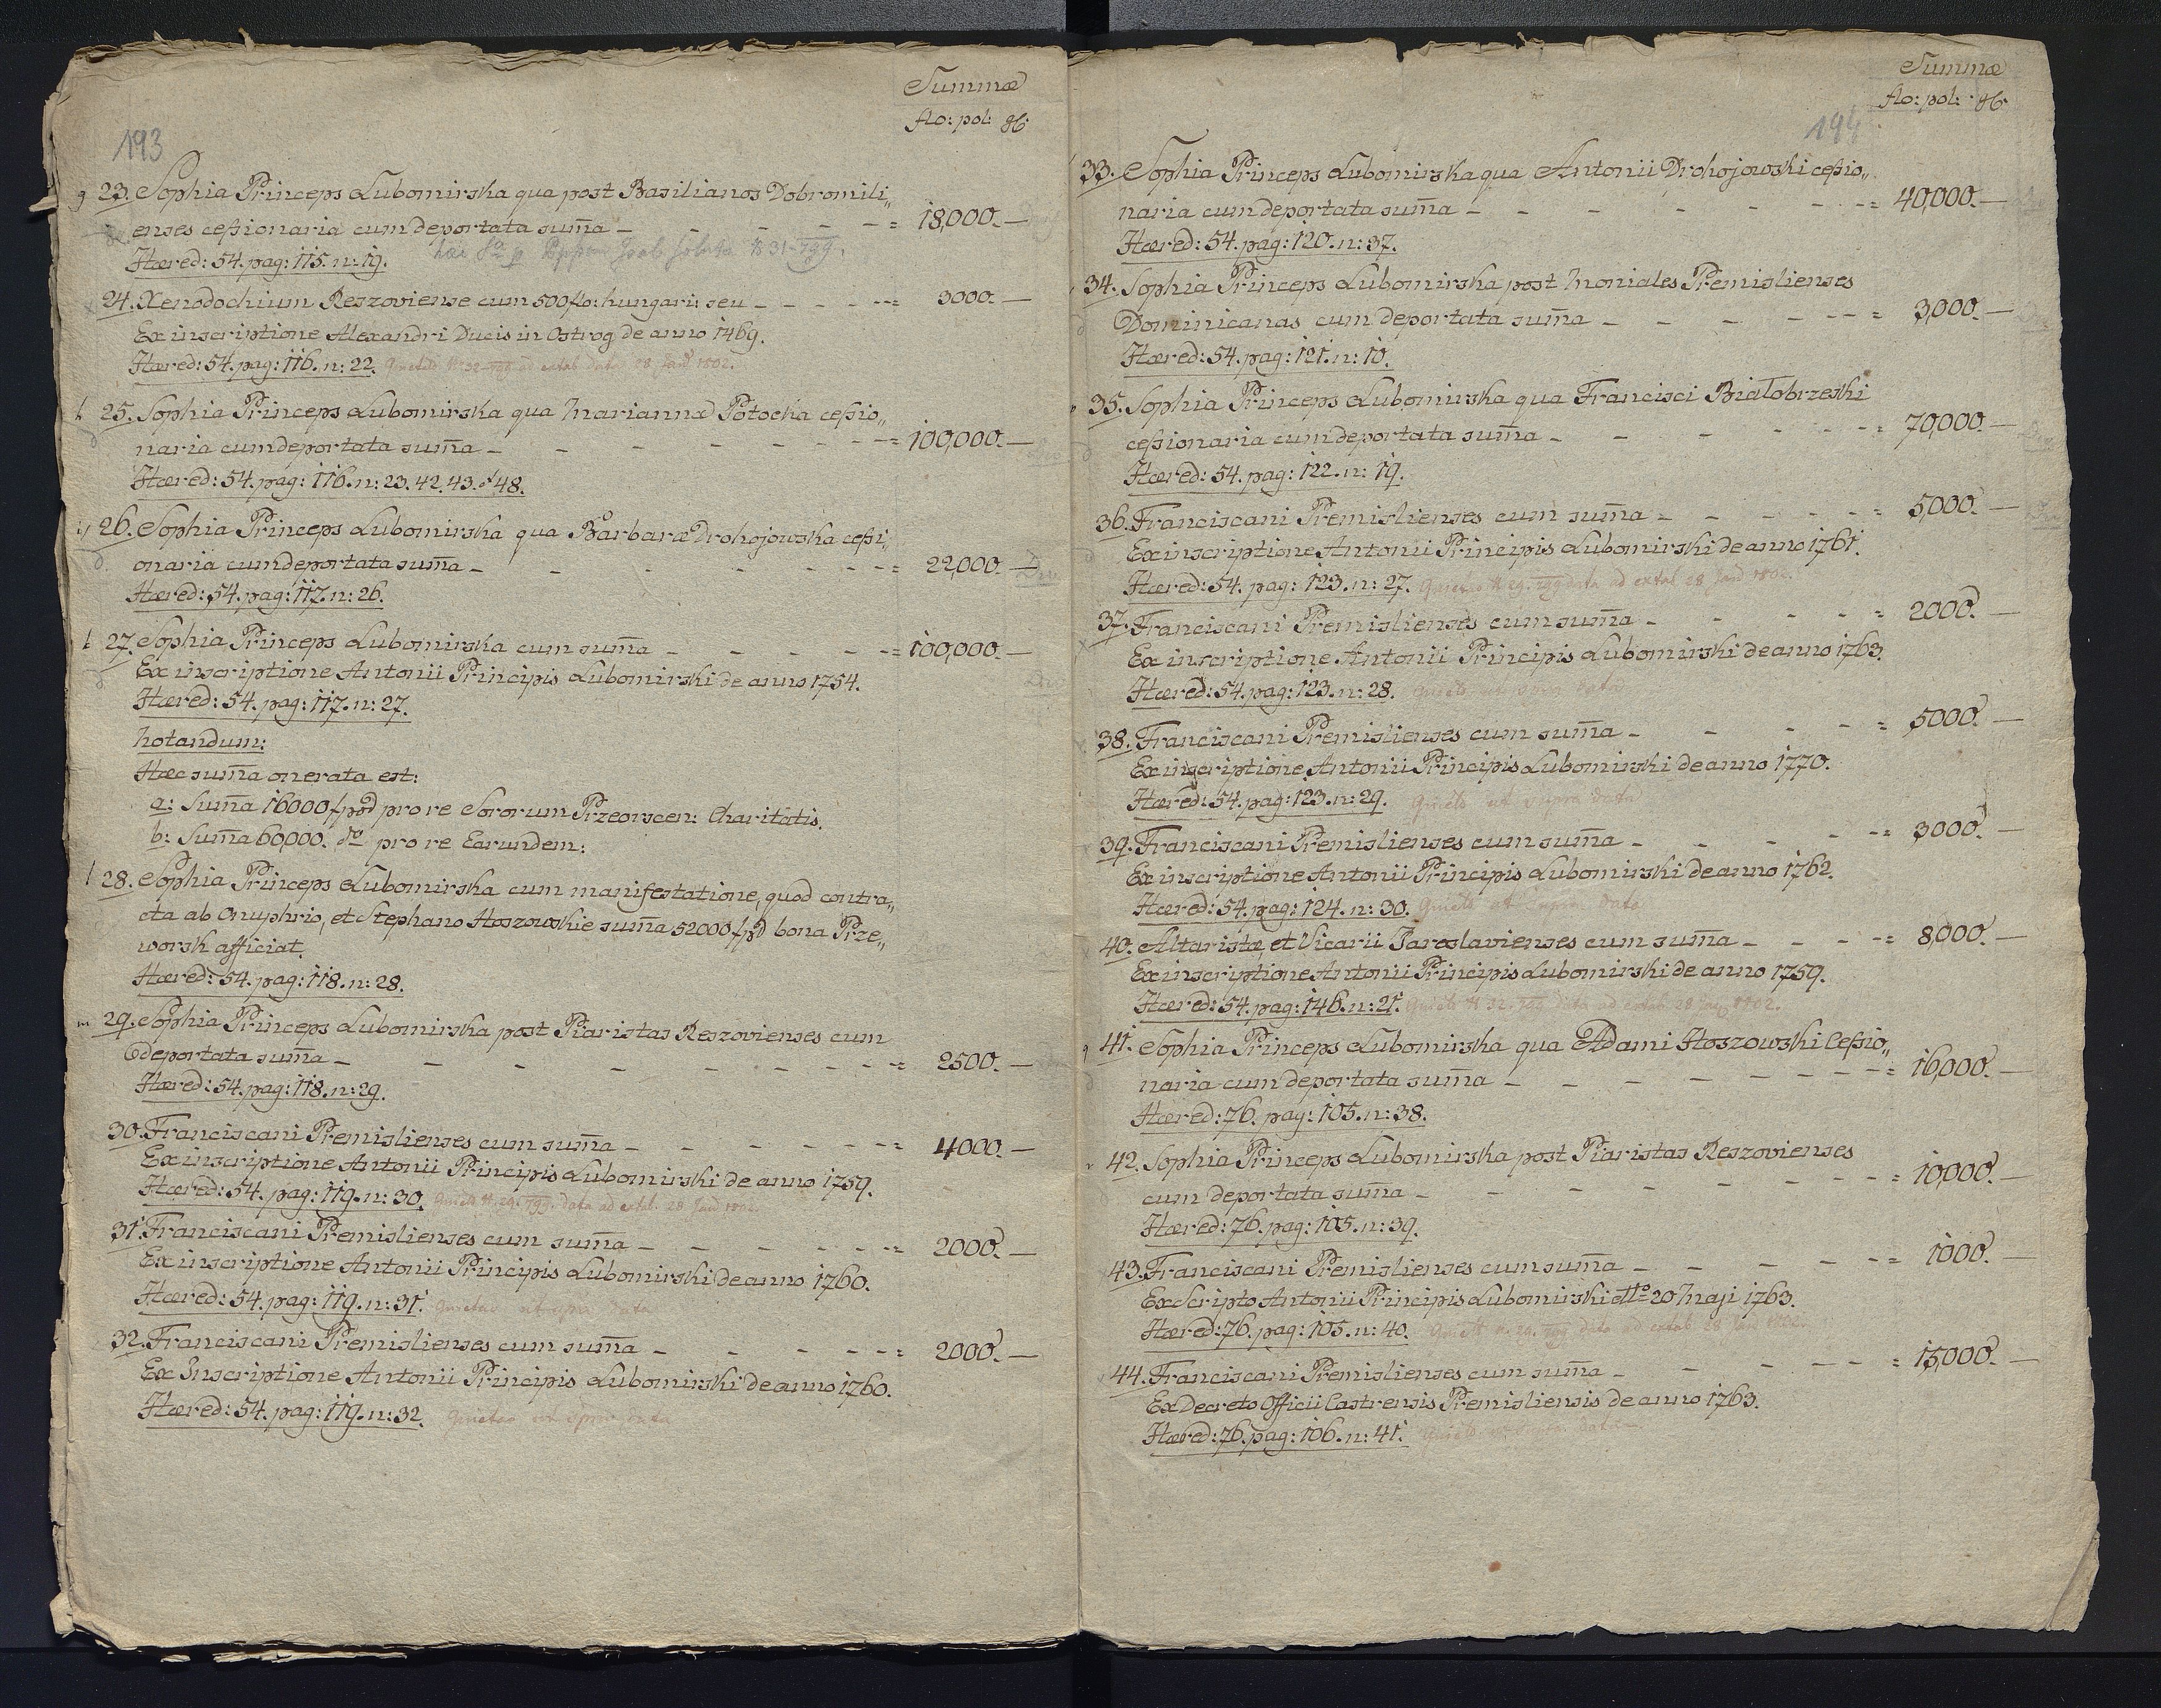 Summæ
flo: pol: gr:
193
g 23. Sophia Princeps Lubomirska qua post Basilianos Dobromili„
enses ceßionaria cum deportata sum̄a – – – – – = 18,000. —
Hæred: 54. pag: 115. n: 19.
24. Xenodochium Reszoviense cum 500 flo: hungari: seu – – – – = 3000. —
Ex inscriptione Alexandri Ducis in Ostrog de anno 1469.
Hæred: 54. pag: 116. n: 22. ad extab. data 28 Janii 1802.
h 25. Sophia Princeps Lubomirska qua Mariannæ Potocka ceßio„
naria cum deportata sum̄a – – – – – – = 100,000. —
Hæred: 54. pag: 116. n: 23. 42. 43. et 48.
i 26. Sophia Princeps Lubomirska qua Barbaræ Drohojowska ceßi„
d. onaria cum deportata sum̄a – – – – – – = 22,000. —
Hæred: 54. pag: 117. n: 26.
27. Sophia Princeps Lubomirska cum sum̄a – – – – – = 100,000. —
Ex inscriptione Antonii Principis Lubomirski de anno 1754.
Hæred: 54. pag: 117. n: 27.
Notandum:
Hæc sum̄a onerata est:
a: Sum̄a 16000 fpol pro re Sororum Przeorscen: Charitatis.
b: Sum̄a 60,000. do pro re Earundem:
l 28. Sophia Princeps Lubomirska cum manifestatione, quod contra„
cta ab Onuphrio, et Stephano Hoszowskie sum̄a 52000 fpol bona Prze„
worsk afficiat.
Hæred: 54. pag: 118. n: 28.
m 29. Sophia Princeps Lubomirska post Piaristas Reszovienses cum
deportata sum̄a – – – – – – – – = 2500. —
Hæred: 54. pag: 118. n: 29.
30. Franciscani Premislienses cum sum̄a – – – – – – = 4000. —
Ex inscriptione Antonii Principis Lubomirski de anno 1759.
Hæred: 54. pag: 119. n: 30. 29. 799. data ad extab. 28 Janii 1802.
31. Franciscani Premislienses cum sum̄a – – – – – = 2000. —
Ex inscriptione Antonii Principis Lubomirski de anno 1760.
Hæred: 54. pag: 119. n: 31. ut supra data
32. Franciscani Premislienses cum sum̄a – – – – – = 2000. —
Ex Inscriptione Antonii Principis Lubomirski de anno 1760.
Hæred: 54. pag: 119. n: 32. ut supra data
Summæ
flo: pol: gr:
194
33. Sophia Princeps Lubomirska qua Antonii Drohojowski ceßio„
naria cum deportata sum̄a – – – – – – = 40,000. —
Hæred: 54. pag: 120. n: 37.
34. Sophia Princeps Lubomirska post Moniales Premislienses
Dominicanas cum deportata sum̄a – – – – – = 3,000. —
Hæred: 54. pag: 121. n: 10.
35. Sophia Princeps Lubomirska qua Francisci Białobrzeski
ceßionaria cum deportata sum̄a – – – – – = 70,000. —
Hæred: 54. pag: 122. n: 19.
36. Franciscani Premislienses cum sum̄a – – – – – = 5,000. —
Ex inscriptione Antonii Principis Lubomirski de anno 1761.
Hæred: 54. pag: 123. n: 27. 29. 799 data ad extab 28 Janii 1802.
37. Franciscani Premislienses cum sum̄a – – – – = 2000. —
Ex inscriptione Antonii Principis Lubomirski de anno 1763.
Hæred: 54. pag: 123. n: 28. ut supra data
38. Franciscani Premislienses cum sum̄a – – – – = 5000. —
Ex inscriptione Antonii Principis Lubomirski de anno 1770.
Hæred: 54. pag: 123. n: 29. ut supra data
39. Franciscani Premislienses cum sum̄a – – – – = 3000. —
Ex inscriptione Antonii Principis Lubomirski de anno 1762.
Hæred: 54. pag: 124. n: 30. ut supra data
40. Altaristæ, et Vicarii Jaroslavienses cum sum̄a – – – – = 8,000. —
Ex inscriptione Antonii Principis Lubomirski de anno 1759.
Hæred: 54. pag: 146. n: 21. 32. 799 data ad extab 28 1802.
q 41. Sophia Princeps Lubomirska qua Adami Hoszowski Ceßio„
naria cum deportata sum̄a – – – – – – – = 16,000. —
Hæred: 76. pag: 105. n: 38.
r 42. Sophia Princeps Lubomirska post Piaristas Reszovienses
cum deportata sum̄a – – – – – – – = 10,000. —
Hæred: 76. pag: 105. n: 39.
43. Franciscani Premislienses cum sum̄a – – – – = 1000. —
Ex Scripto Antonii Principis Lubomirski dtto 20 Maji 1763.
Hæred: 76. pag: 105. n: 40. 29. 799 data ad extab 28
44. Franciscani Premislienses cum sum̄a – – – – – = 15,000. —
Ex Decreto Officii Castrensis Premisliensis de anno 1763.
Hæred: 76. pag: 106. n: 41.